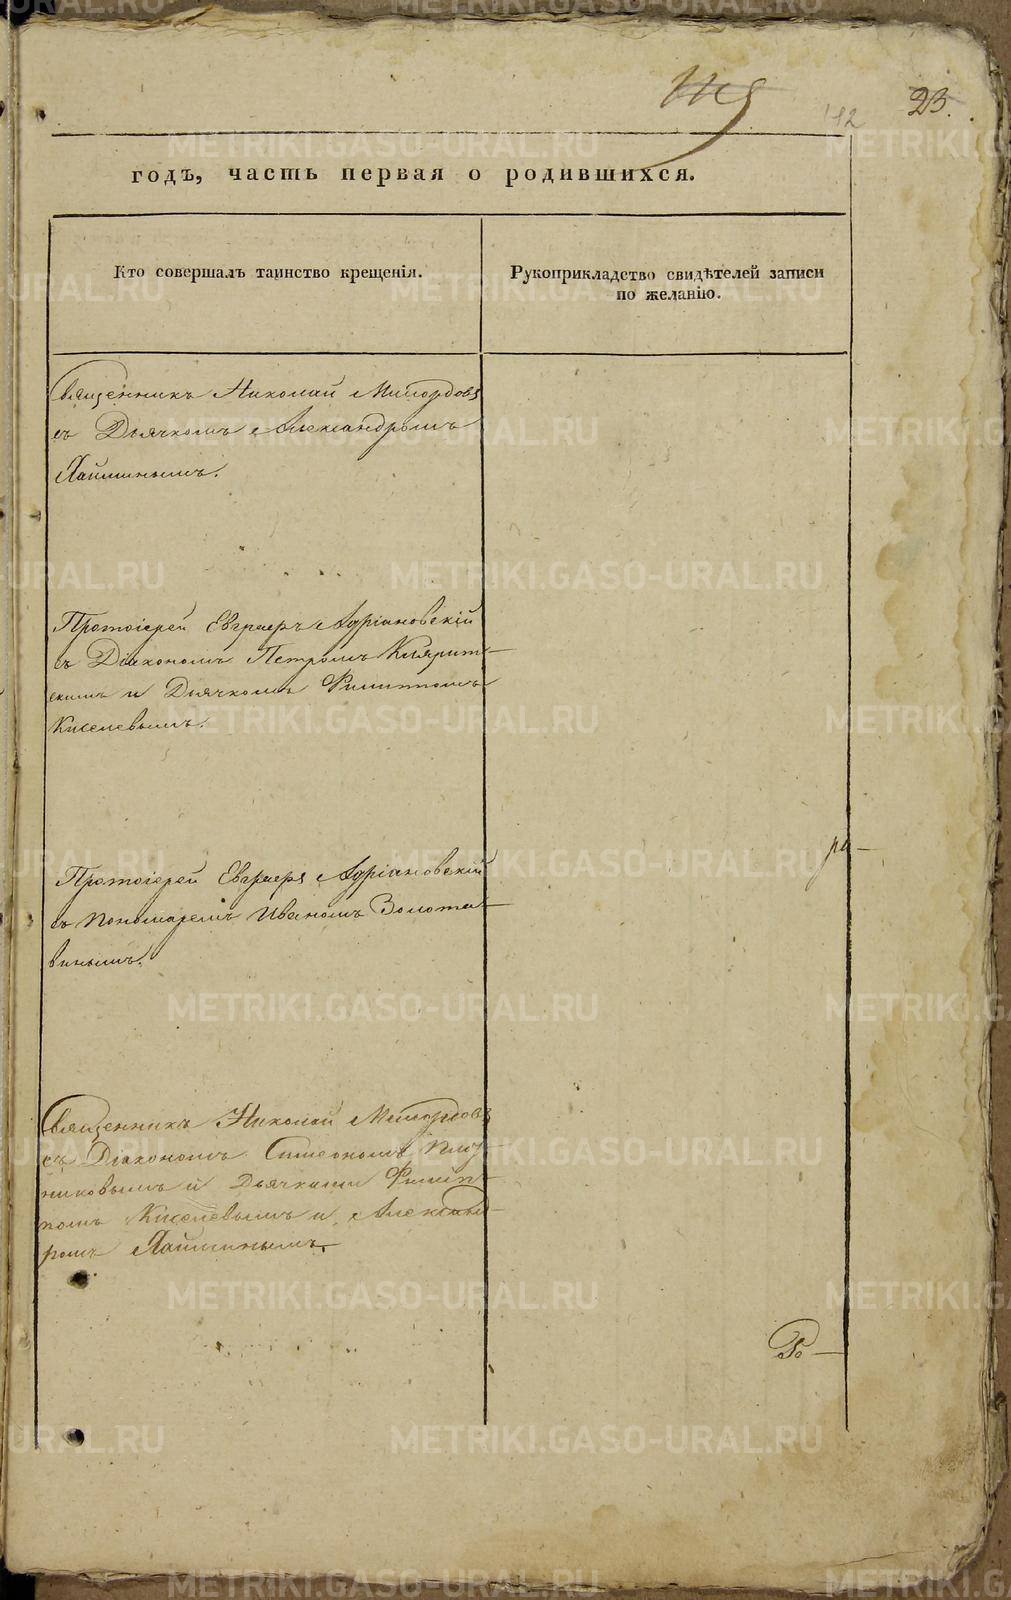 23.
годъ, часть первая о родившихся.
Кто совершалъ таинство крещенія.
Рукоприкладство свидѣтелей записи
по желанію.
Священникъ Николай Милордовъ
съ Дьячкомъ Александромъ
Ляйминымъ.
Протоіерей Евграфъ Адріановскій
съ Діакономъ Петромъ
скимъ и Дьячкомъ Филиппомъ
Киселевымъ.
Протоіерей Евграфъ Адріановскій
съ Пономаремъ Иваномъ Золота-
винымъ.
Священникъ Николай Милордовъ
съ Діакономъ Симеономъ
никовымъ и Дьячками Филип-
помъ Киселевымъ и Александ-
ромъ Ляйминымъ.
METRIKI.GASO-URAL.RU